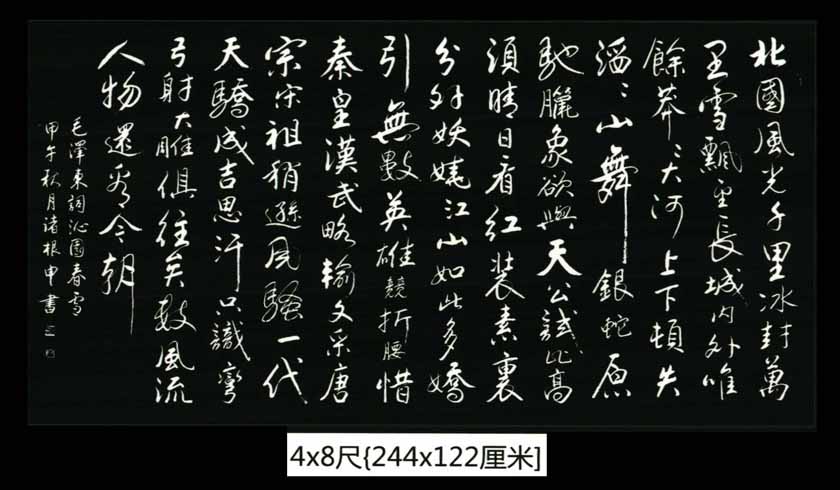 北國風光千里冰封萬
里雪飄望長城内外唯
餘莽〻大河上下頓失
滔〻山舞銀蛇原
馳臘象欲與天公試比高
須晴日看紅裝素裹
分外妖嬈江山如此多嬌
引無數英雄競折腰惜
秦皇漢武略輸文采唐
宗宋祖稍遜風騷一代
天驕成吉思汗只識彎
弓射大雕俱往矣數風流
人物還看今朝
毛澤東詞沁園春雪
甲午秋月諸根申書
4x8尺{244x122厘米]